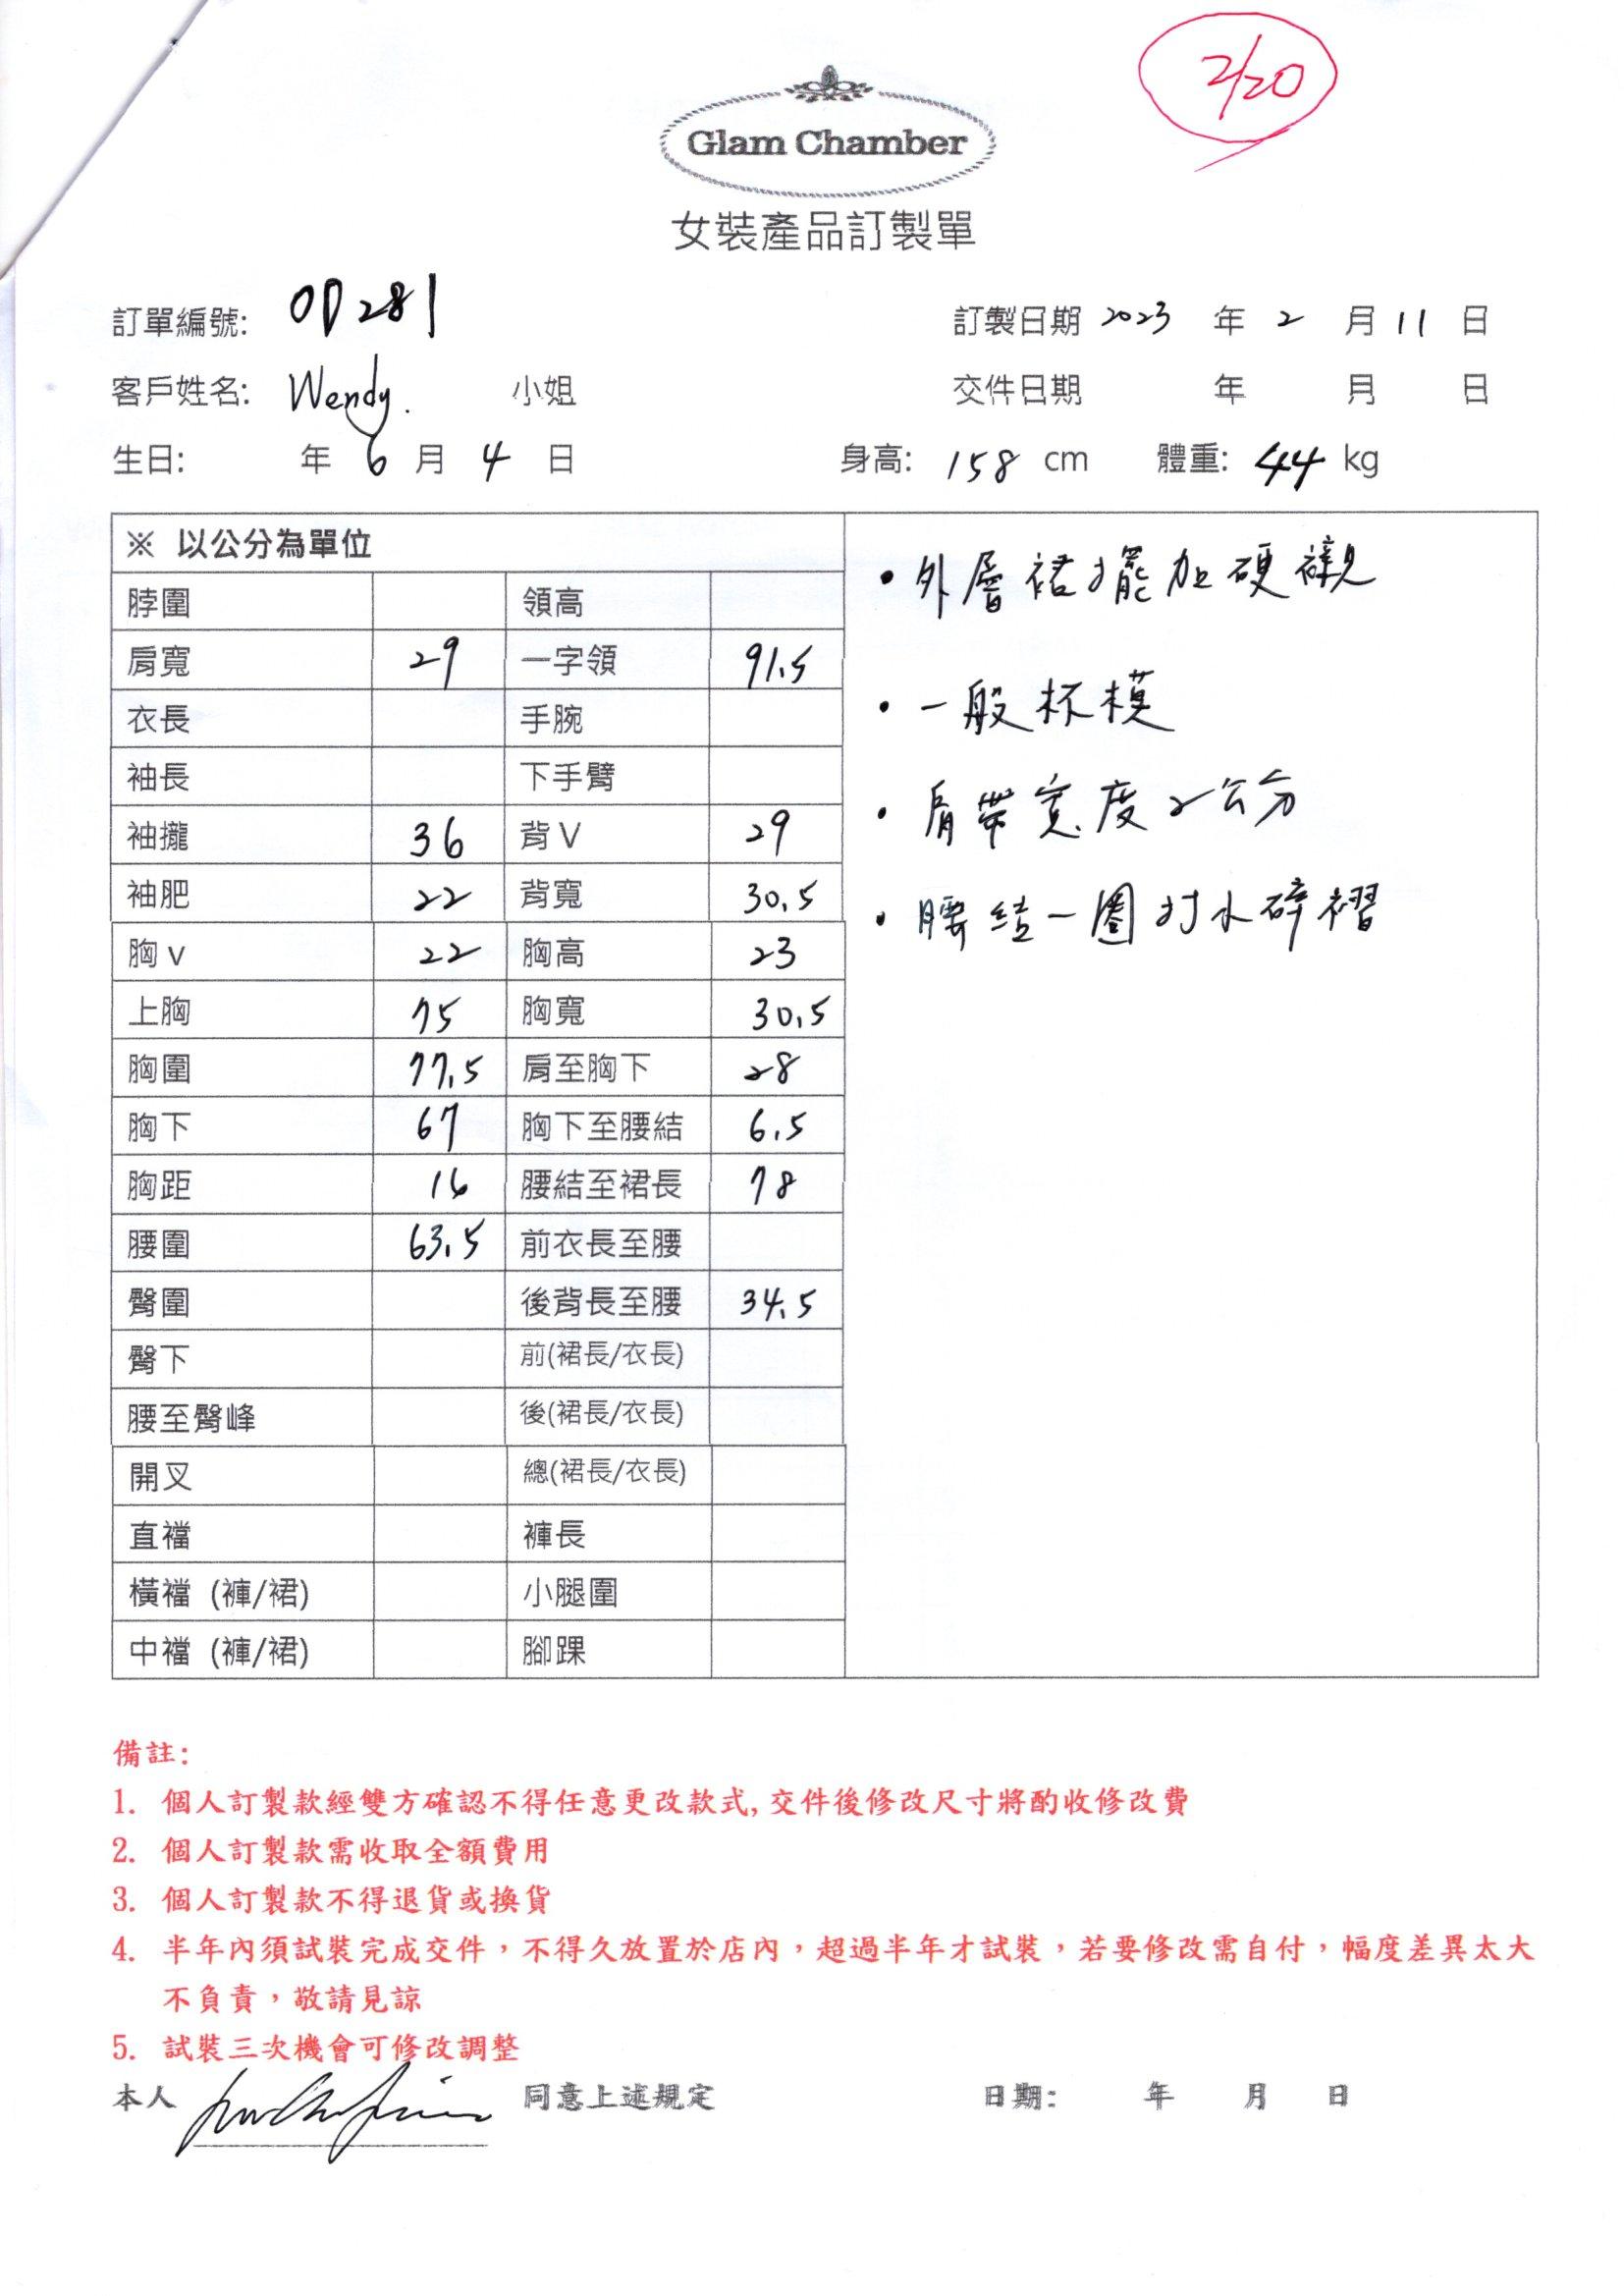 2/20
Glam Chamber
女裝產品訂製單
訂單編號: OD281 訂製日期 2023 年 2 月 11 日
客戶姓名: Wendy. 小姐 交件日期 年 月 日
生日: 年 6 月 4 日 身高: 158 cm 體重: 44 kg
※ 以公分為單位
脖圍 領高
肩寬 29 一字領 91.5
衣長 手腕
袖長 下手臂
袖攏 36 背V 29
袖肥 22 背寬 30.5
胸v 22 胸高 23
上胸 75 胸寬 30.5
胸圍 77.5 肩至胸下 28
胸下 67 胸下至腰結 6.5
胸距 16 腰結至裙長 78
腰圍 63.5 前衣長至腰
臀圍 後背長至腰 34.5
臀下 前(裙長/衣長)
腰至臀峰 後(裙長/衣長)
開叉 總(裙長/衣長)
直襠 褲長
橫襠 (褲/裙) 小腿圍
中襠 (褲/裙) 腳踝
• 外層裙擺加硬襯
• 一般杯模
• 肩帶寬度2公分
• 腰結一圈打小碎褶
備註:
1. 個人訂製款經雙方確認不得任意更改款式,交件後修改尺寸將酌收修改費
2. 個人訂製款需收取全額費用
3. 個人訂製款不得退貨或換貨
4. 半年內須試裝完成交件，不得久放置於店內，超過半年才試裝，若要修改需自付，幅度差異太大
不負責，敬請見諒
5. 試裝三次機會可修改調整
本人 同意上述規定 日期: 年 月 日